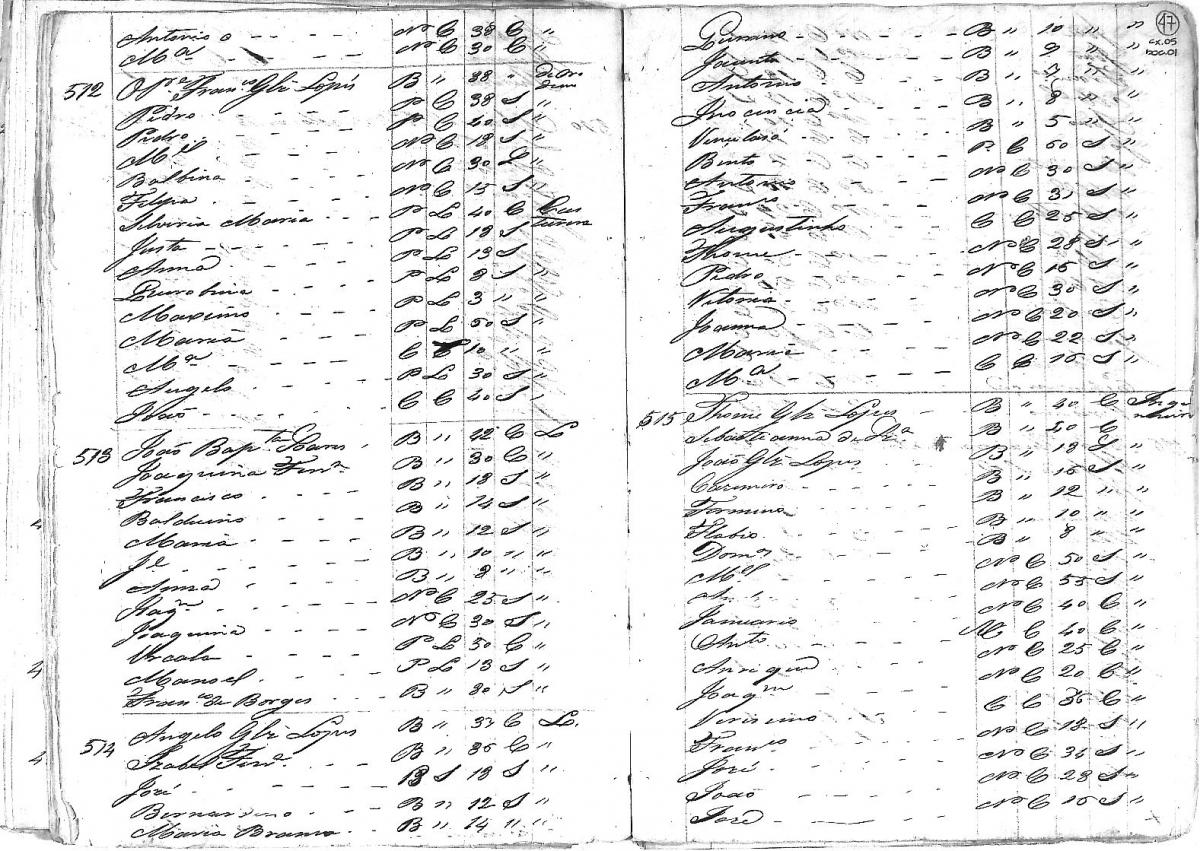 Antonio No C 38 C "
Mª No C 30 C "
512 O Pe Franco Glz Lopes B " 38 " de Ordens
Pedro P C 38 S "
Pedro P C 40 S "
Mel No C 18 S "
Balbina No C 30 L "
Felipa No C 15 S "
Silviria Maria P L 40 C Costureira
Justa P L 18 S "
Anna P L 13 S "
P L 8 S "
Maximo P L 3 " "
Maria P L 50 S "
Mª C C 10 " "
Angelo P L 30 S "
João C C 40 S "
513 João Bapta B " 42 C L
Joaquina Ferra B " 30 C "
Francisco B " 18 S "
Balduino B " 14 S "
Maria B " 12 S "
Je B " 10 " "
Anna B " 8 " "
Joaqm No C 25 S "
Joaquina No C 30 S "
Urcula P L 50 C "
Manoel P L 13 S "
Franco de Borges B " 30 S "
514 Angelo Glz Lopes B " 37 C L.
Izabel Ferra B " 36 C "
José B S 18 S "
Bernardino B " 12 S "
Maria Branca B " 14 " "
47
cx.05
DOC.01
Firmino B " 10 " "
Jacinta B " 9 " "
Antonio B " 7 " "
Inocencia B " 8 " "
B " 5 " "
Bento P C 60 S "
Antonio No C 30 S "
Franco No C 31 S "
Augustinho C C 25 S "
Thome No C 28 S "
Pedro No C 16 S "
Vitoria No C 30 S "
Joanna No C 20 S "
Maria No C 22 S "
Mª C C 16 S "
515 Thome Glz Lopes B " 40 C
Sebastianna de B " 40 C "
João Glz Lopes B " 18 S "
Cazemiro B " 16 S "
Fermina B " 12 " "
Flabio B " 10 " "
Domos B " 8 " "
Mel No C 50 S "
No C 55 S "
Januario No C 40 C "
Anto C 40 C "
Anrique No C 25 C "
Joaqm No C 20 C "
Verissimo C C 36 C "
Franco No C 18 S "
José No C 36 S "
João No C 28 S "
José No C 16 S "